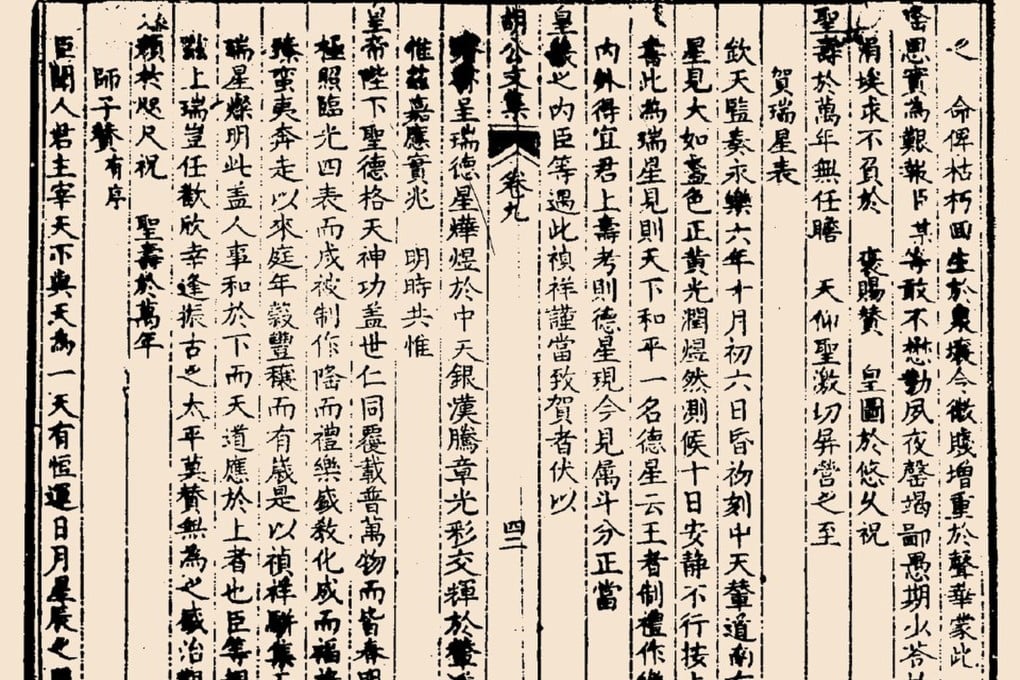 之　命俾枯朽回生於泉壤今微賤增重於聲華蒙此
思實為艱報臣某等敢不懋勤夙夜罄竭鄙愚期少答於
涓埃求不負於　褒賜贊　皇圖於悠久祝
聖壽於萬年無任瞻　天仰聖激切屏營之至
賀瑞星表
欽天監奏永樂六年十月初六日昏初刻中天輦道南有
星見大如盞色正黃光潤煜然測候十日安静不行按占
書此為瑞星見則天下和平一名德星云王者制禮作樂
内外得宜君上壽考則德星現今見属斗分正當
皇之内臣等遇此禎祥謹當致賀者伏以
胡公文集 卷九 四二
呈瑞德星燁煜於中天銀漢騰章光彩交輝於
惟茲嘉應實兆　明時共惟
皇帝陛下聖德格天神功盖世仁同覆載普萬物而皆春明
極照臨光四表而咸被制作隆而禮樂盛教化成而福
臻蛮夷奔走以來庭年穀豐穰而有歲是以禎祥駢集
瑞星燦明此盖人事和於下而天道應於上者也臣等
上瑞豈任歡欣幸逢振古之太平莫贊無為之盛治
顏於咫尺祝　聖壽於萬年
師子贊有序
臣聞人君主宰天下與天為一天有恒運日月星辰之